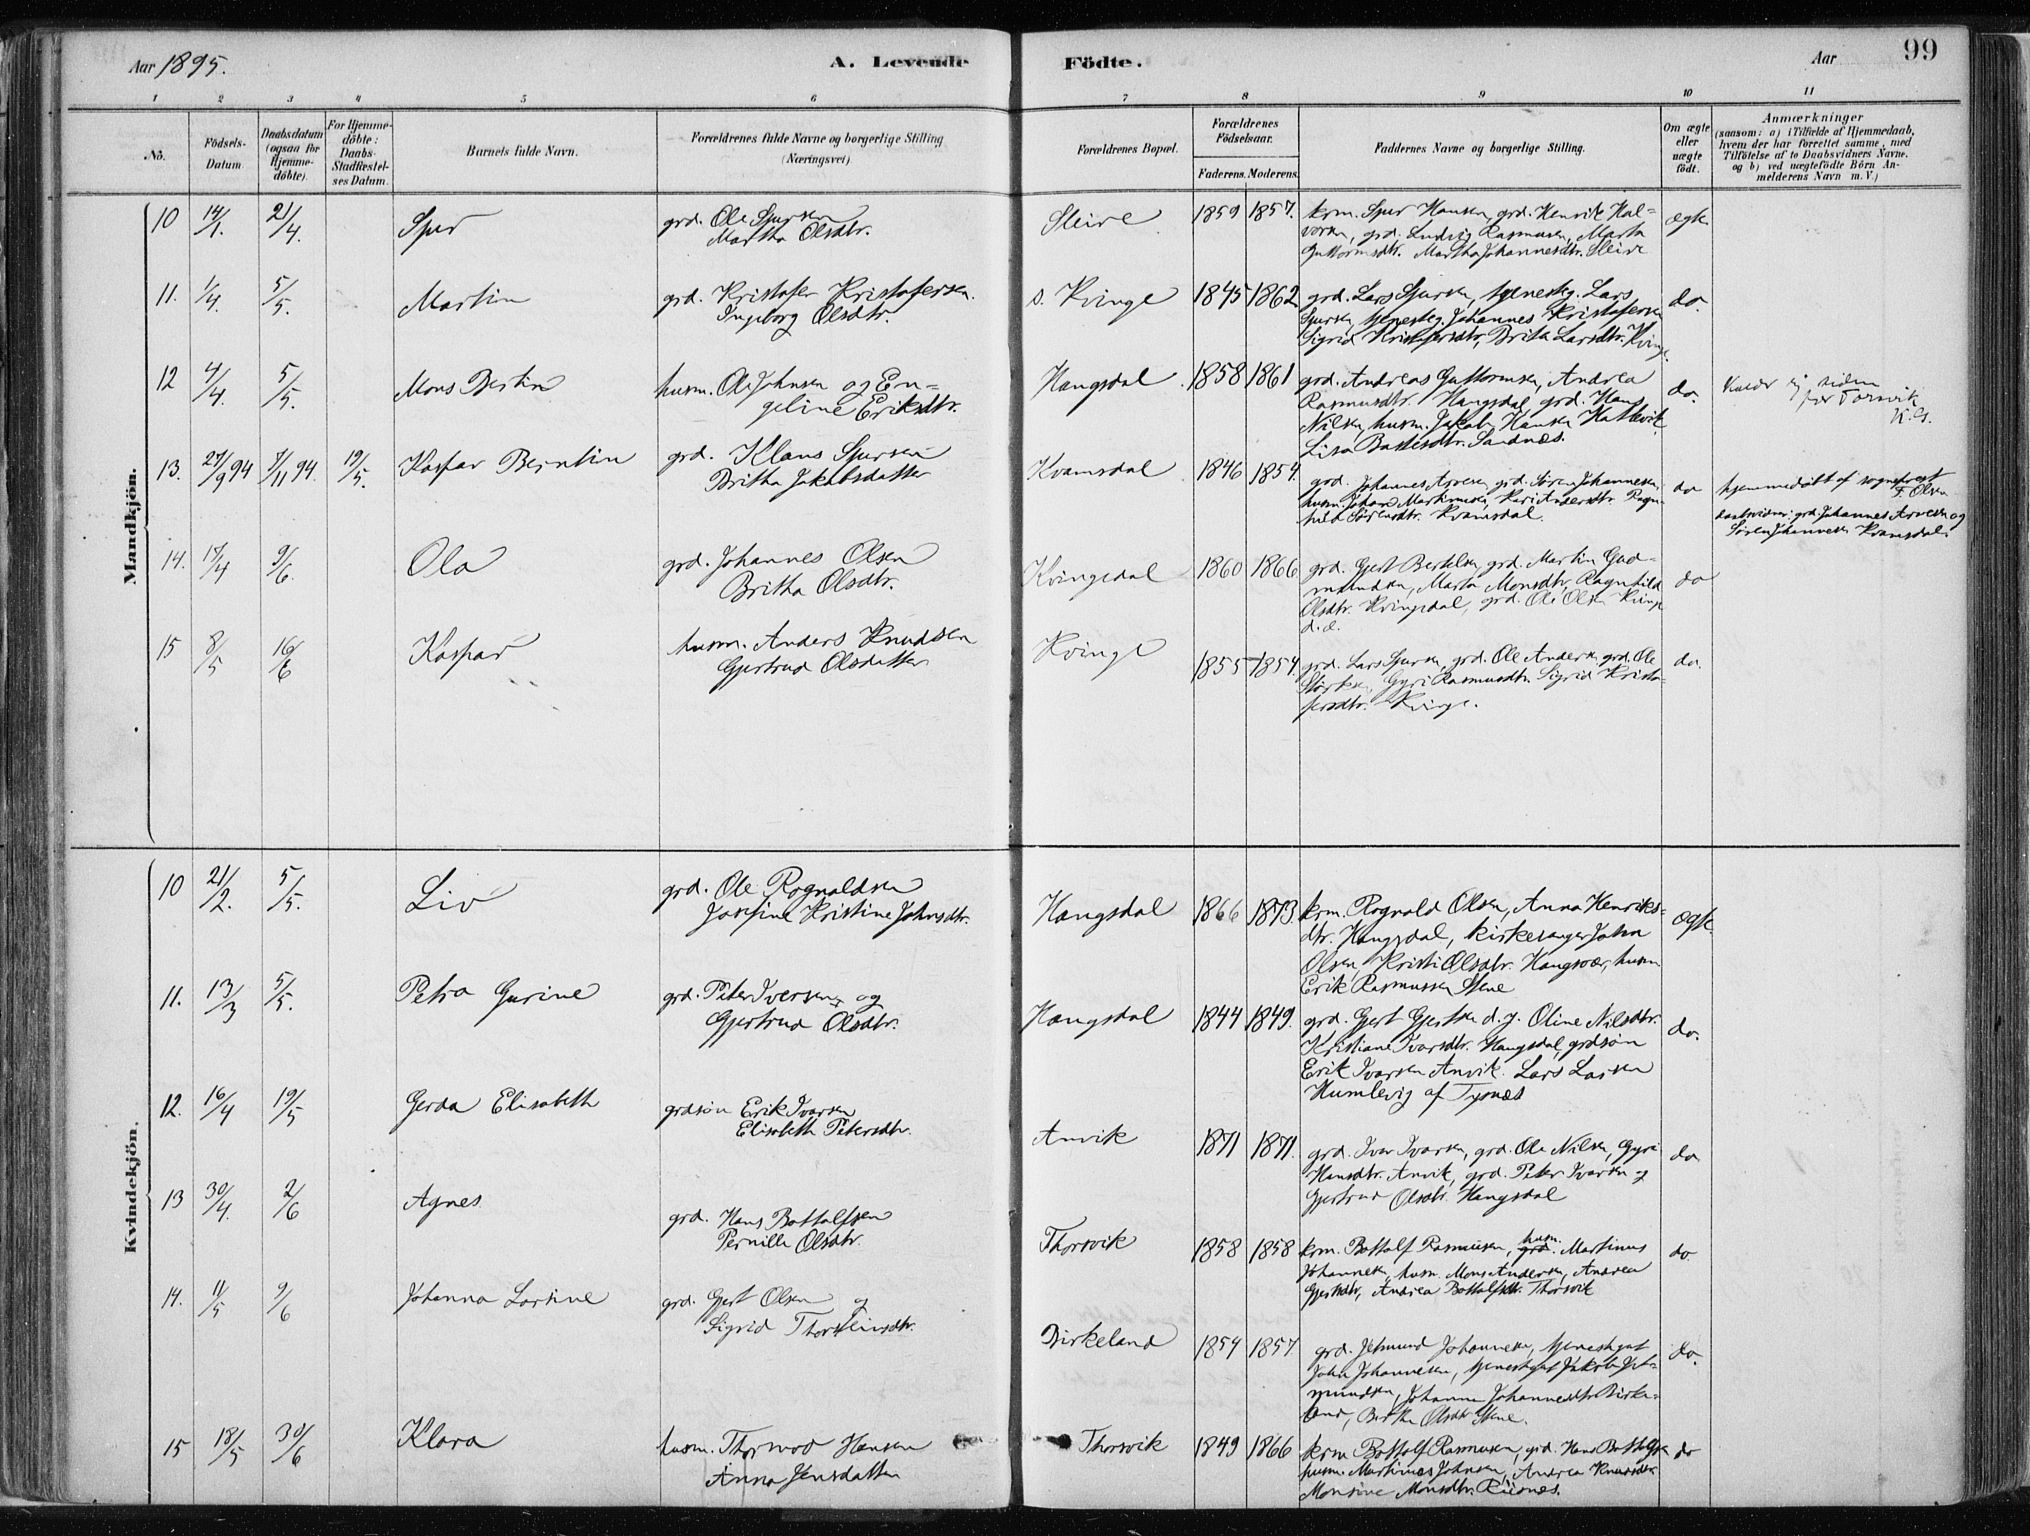 Aar 1895.
A. Levende Födte.
Aar
99
1 2 3 4 5 6 7 8 9 10 11
No.
Födsels-Datum
Daabsdatum (ogsaa for Hjemme-döbte).
For Hjemme-döbte: Daabs-Stadfæstel-ses Datum.
Barnets fulde Navn.
Forældrenes fulde Navne og borgerlige Stilling (Næringsvei).
Forældrenes Bopæl.
Forældrenes Födselsaar.
Faderens. Moderens.
Faddernes Navne og borgerlige Stilling.
Om ægte eller uægte födt.
Anmærkninger
(saasom: a) i Tilfælde af Hjemmedaab,
hvem der har forrettet samme, med
Tilföielse af to Daabsvidners Navne.
og b) ved uægtefödte Börn An-
melderens Navn m. V.)
Mandkjön.
10 14/1. 21/4. Spur grd. Ole Spursen
Martha Olsdtr. Sleire 1859 1857. krm. Spur Hansen, grd. Henrik Hal-
vorsen, grd. Ludvig Rasmusen, Marta
Guttormsdtr. Martha Johannesdtr. Sleire ægte
11. 1/4. 5/5. Martin grd. Kristofer Kristofersen.
Ingeborg Olsdtr. s. Kvinge 1845 1862 grd. Lars Spursen, tjenestg. Lars
Spursen, tjenesteg. Johannes Kristofersen
Sigrid Kristofersdtr, Brita Larsdtr. Kvinge. do.
12 4/4. 5/5. Mons Bertin husm. Ole Johnsen og En-
geline Eriksdtr. Haugsdal 1858 1861 grd. Andreas Guttormsen, Andrea
Rasmusdtr. Haugsdal grd. Hans
Nilsen, husm. Jakob Hansen Kallevik
Lisa Bastesdtr. Sandnæs. do. siden
Torsvik
K.G.
13. 27/9 94 7/11 94. 19/5. Kaspar Berntin grd. Klaus Spursen
Britha Jakobsdatter Kvamsdal 1846 1854. grd. Johannes Arvesen, grd. Søren Johannesen,
husm. Johan Martinusen, Kari Andersdtr. Ragn-
hild Sørensdtr. Kvamsdal. do hjemmedøbt af sogneprest
F. Olsen
daabsvidner: grd. Johannes Arvesen og
Søren Johannesen Kvamsdal.
14. 17/4 9/6. Ola grd. Johannes Olsen
Britha Olsdtr. Kvingedal 1860 1866 grd. Gjert Bertelsen, grd. Martin Gud-
mundsen, Marta Monsdtr, Ragnhild
Olsdtr. Kvingedal, grd. Ole Olsen Kvinge
d. æ. do
15 8/5 16/6 Kaspar husm. Anders Knudsen
Gjertrud Olsdatter Kvinge 1855 1854. grd. Lars Spursen, grd. Ole Andersen, grd. Ole
Størksen, Gyri Rasmusdtr. Sigrid Kristo-
fersdtr. Kvinge. do.
Kvindekjön.
10 21/2. 5/5. Liv grd. Ole Rognaldsen
Josefine Kristine Johnsdtr. Haugsdal 1866 1873. krm. Rognald Olsen, Anna Henriks-
dtr. Haugsdal, kirkesanger John
Olsen, Kristi Olsdtr. Haugsvær, husm
Erik Rasmussen Stene ægte.
11. 13/3 5/5. Petra Gurine grd. Peter Iversen og
Gjertrud Olsdtr. Haugsdal 1844 1849. grd. Gjert Gjertsen d. y. Oline Nilsdtr.
Kristiane Ivarsdtr. Haugsdal, grdsøn
Erik Ivarsen Anvik. Lars Larsen
Humlevig af Tysnæs do.
12. 16/4 19/5 Gerda Elisabeth grdsøn Erik Ivarsen
Elisabeth Petersdtr. Anvik 1871 1871. grd. Ivar Ivarsen, grd. Ole Nilsen, Gyri
Hansdtr. Anvik, grd. Peter Ivarsen og
Gjertrud Olsdtr. Haugsdal do
13 30/4. 2/6 Agnes grd. Hans Bottolfsen
Pernille Olsdtr. Thorsvik 1858 1858 krm. Bottolf Rasmusen, husm. Martinus
Johannesen, husm. Mons Andersen, Andrea
Gjertsdtr, Andrea Bottolfsdtr. Thorsvik do
14. 11/5 9/6 Johanna Lartine grd. Gjert Olsen og
Sigrid Thorsteinsdtr. Birkeland 1854 1857. grd. Jetmund Johannesen, tjenestgut
John Johannesen, tjenestgut Jakob Jet-
mundsen, Johanna Johannesdtr. Birke-
land, Britha Olsdtr Stene. do.
15 18/5 30/6 Klara husm. Thormod Hansen
Anna Jensdatter Thorsvik 1849 1866 krm Bottolf Rasmusen, grd. Hans Bottolfsen
husm. Martinus Johnsen, Andrea Knudsdtr
Monsine Monsdtr. Risnes. do